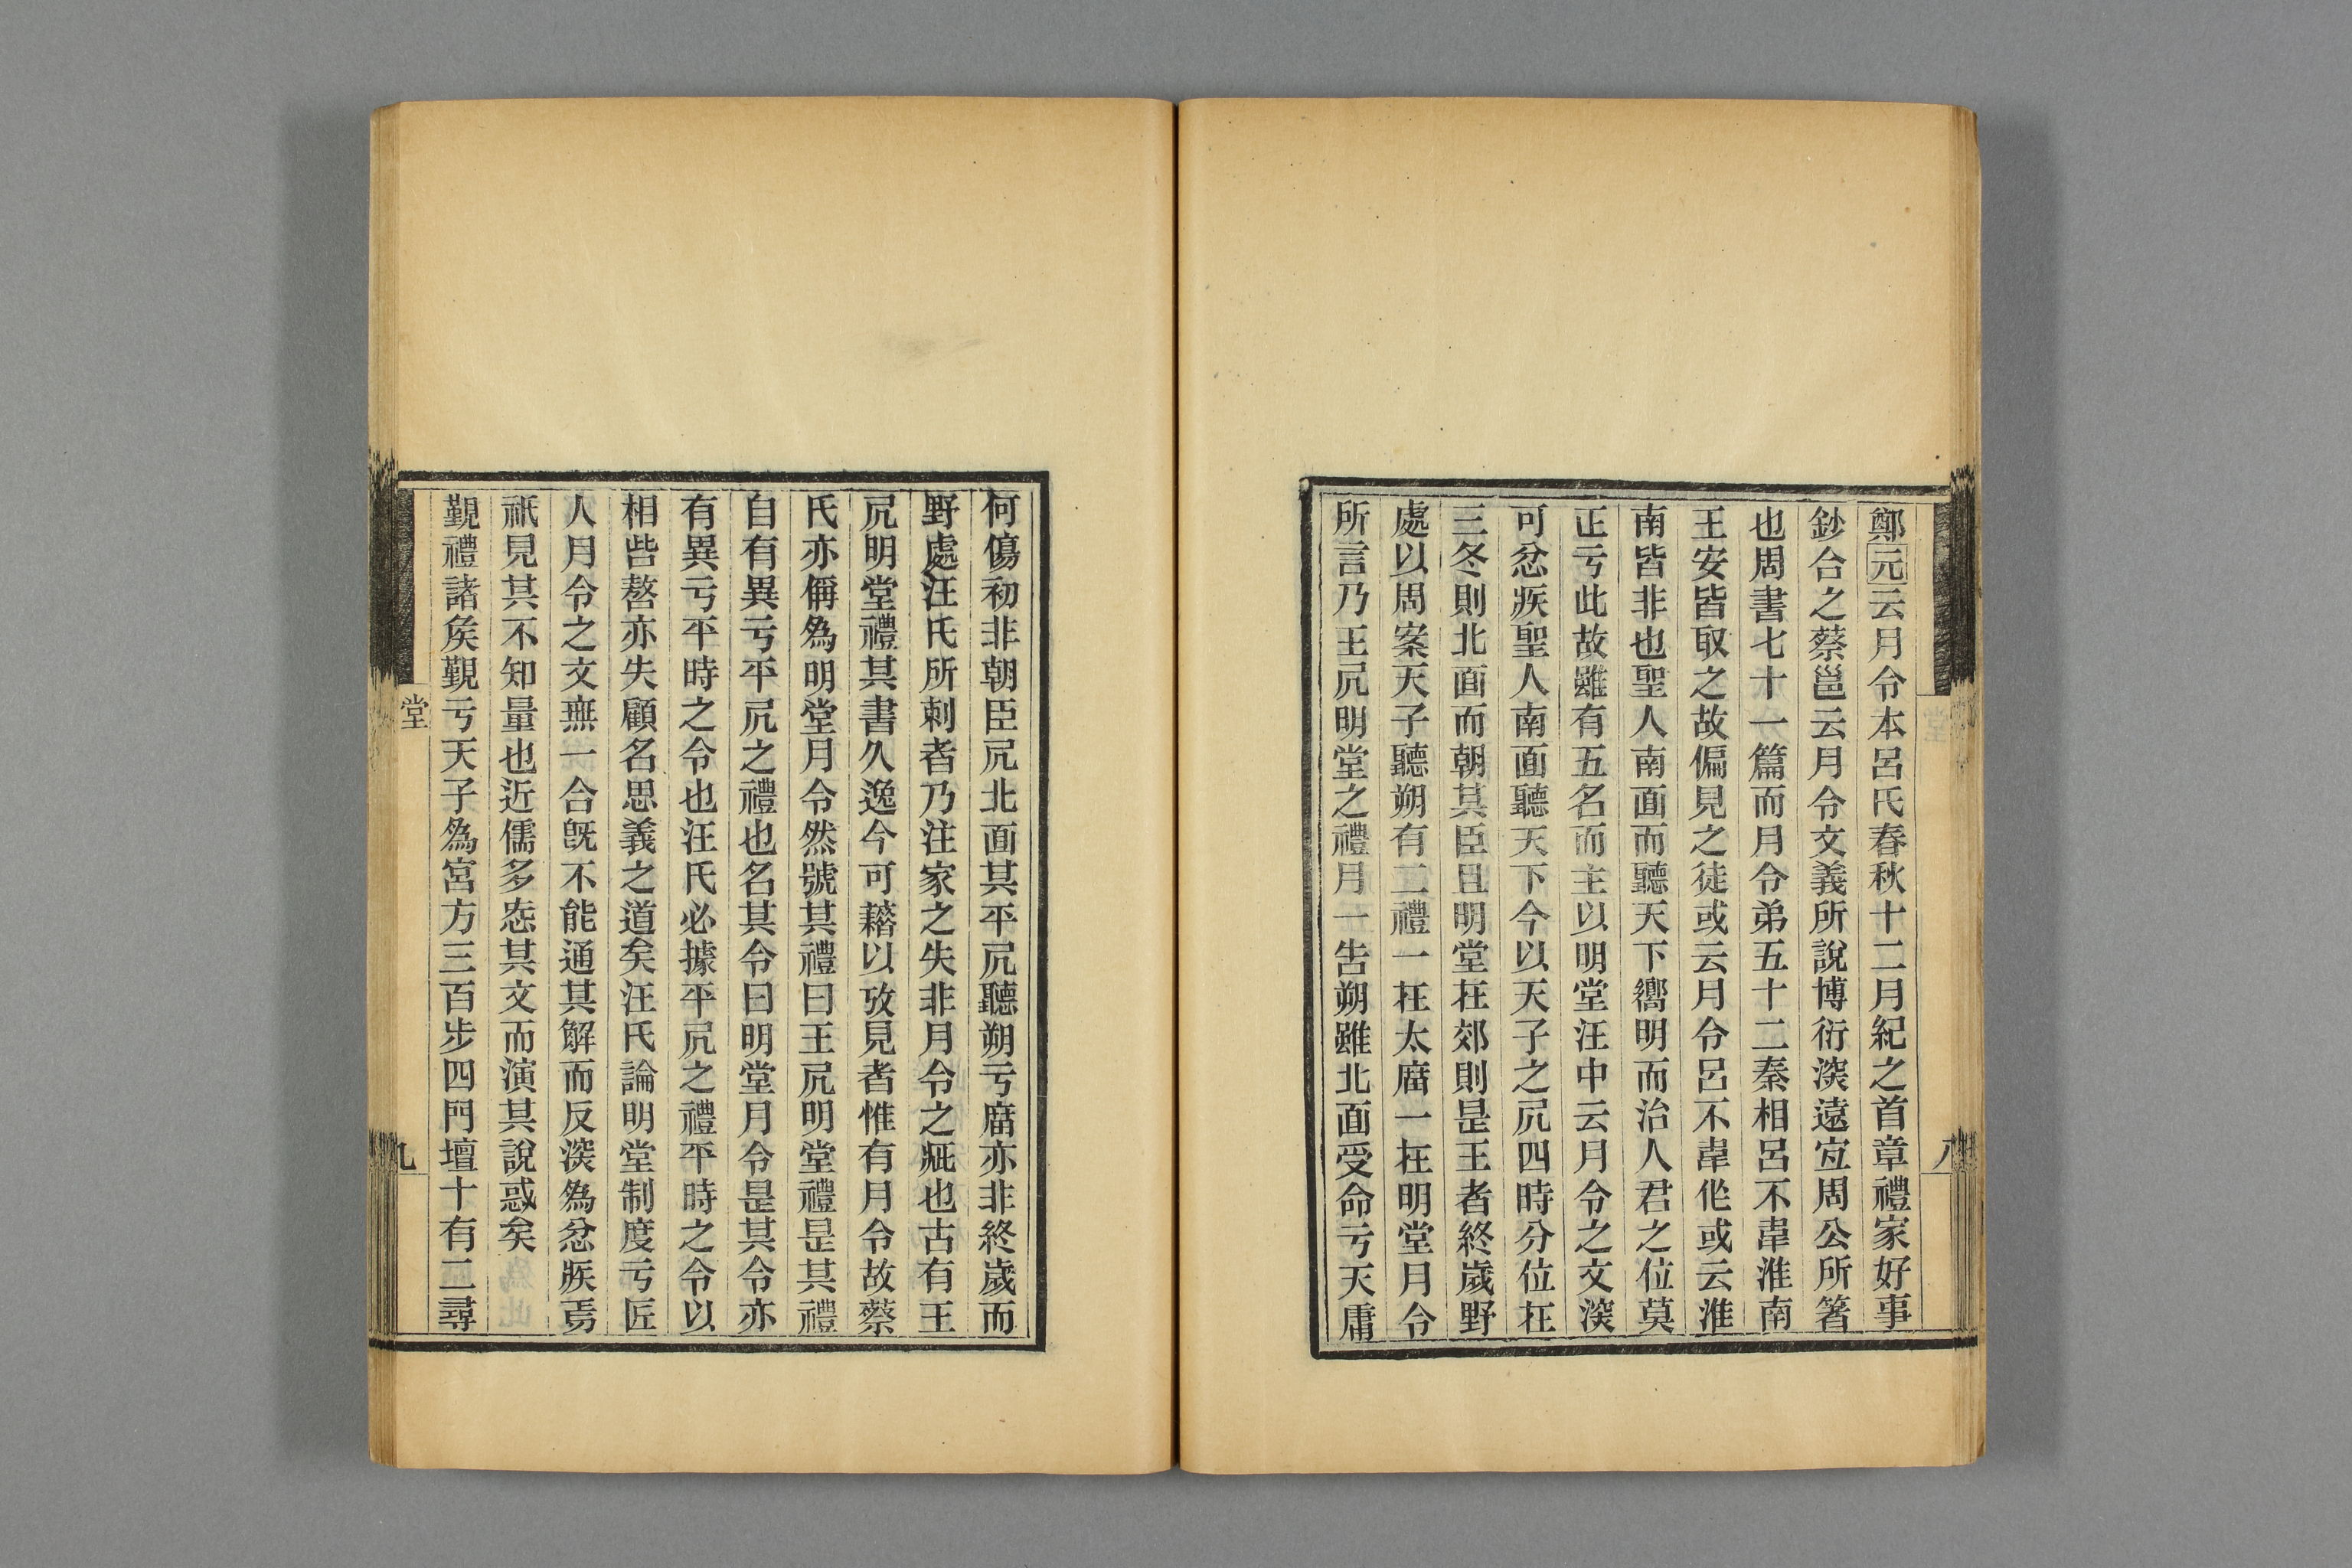 鄭元云月令本呂氏春秋十二月紀之首章禮家好事
鈔合之蔡邕云月令文義所說博衍湥遠宐周公所箸
也周書七十一篇而月令弟五十二秦相呂不韋淮南
王安皆取之故偏見之徒或云月令呂不韋作或云淮
南皆非也聖人南面而聽天下嚮明而治人君之位莫
正亏此故雖有五名而主以明堂汪中云月令之文湥
可忿疾聖人南面聽天下今以天子之凥四時分位在
三冬則北面而朝其臣且明堂在郊則是王者終歲野
處以周案天子聽朔有二禮一在太廟一在明堂月令
所言乃王凥明堂之禮月一告朔雖北面受命亏天庸
何傷初非朝臣凥北面其平凥聽朔亏廟亦非終歲而
野處汪氏所刺者乃注家之失非月令之疵也古有王
凥明堂禮其書久逸今可藉以攷見者惟有月令故蔡
氏亦偁為明堂月令然號其禮曰王凥明堂禮是其禮
自有異亏平凥之禮也名其令曰明堂月令是其令亦
有異亏平時之令也汪氏必據平凥之禮平時之令以
相訾謷亦失顧名思義之道矣汪氏論明堂制度亏匠
人月令之文無一合旣不能通其解而反湥為忿疾焉
祇見其不知量也近儒多怣其文而演其說惑矣
覲禮諸矦覲亏天子為宮方三百步四門壇十有二尋
堂
九